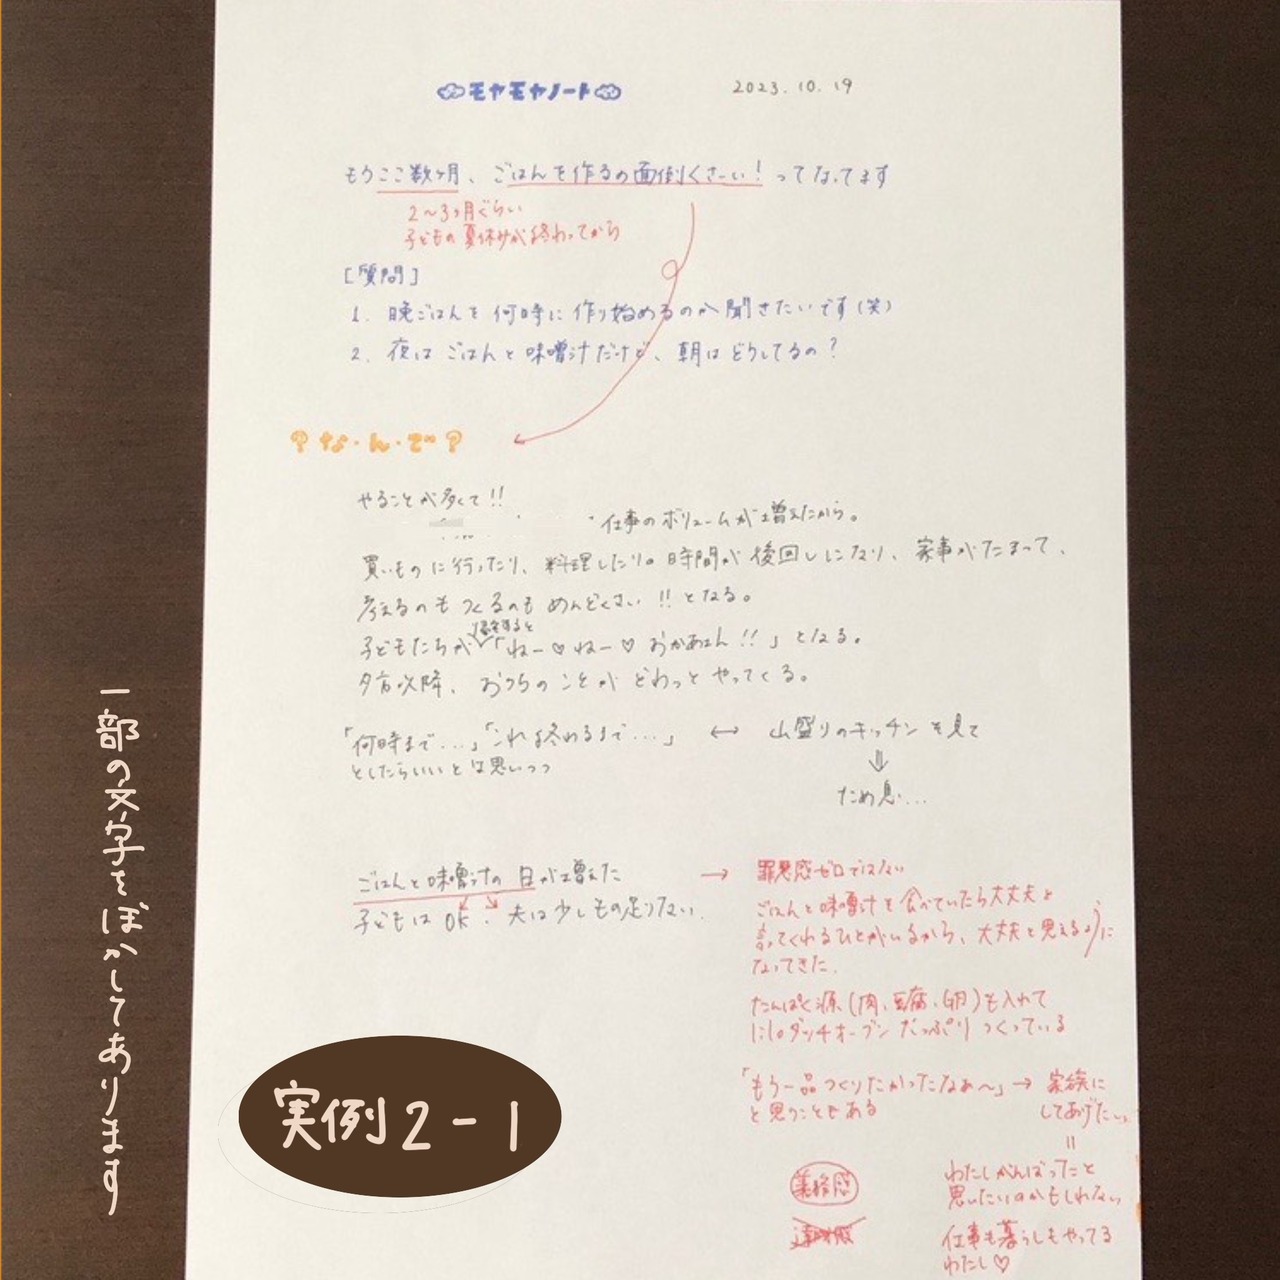 モヤモヤノート
2023.10.19
もうここ数ヶ月、ごはんを作るの面倒くさーい!ってなってます
2〜3ヶ月ぐらい
子どもの夏休みが終わってから
[質問]
1. 晩ごはんを何時に作り始めるのか聞きたいです(笑)
2. 夜はごはんと味噌汁だけど、朝はどうしてるの?
?な・ん・で?
やることが多くて!!
・仕事のボリュームが増えたから。
買いものに行ったり、料理したりの時間が後回しになり、家事がたまって、
考えるのもつくるのもめんどくさい!!となる。
帰宅すると
子どもたちが「ねー♡ねー♡おかあさん!!」となる。
夕方以降、おうちのことがどわっとやってくる。
「何時まで...」「これ終わるまで...」 ↔ 山盛りのキッチンを見て
としたらいいとは思いつつ
⇓
ため息...
ごはんと味噌汁の日が増えた → 罪悪感ゼロではない
子どもはOK. 夫は少しもの足りない.
ごはんと味噌汁を食べていたら大丈夫と
言ってくれるひとがいるから、大丈夫と思えるように
なってきた.
たんぱく源(肉、豆腐、卵)も入れて
にしもダッチオーブンたっぷりつくっている
「もう一品つくりたかったなぁ〜」→ 家族に
と思うこともある
してあげたい。
॥
わたしがんばったこと
思いたいのかもしれない
義務感
達成感
仕事も暮らしもやってる
わたし♡
一部の文字をぼかしてあります
実例2-1